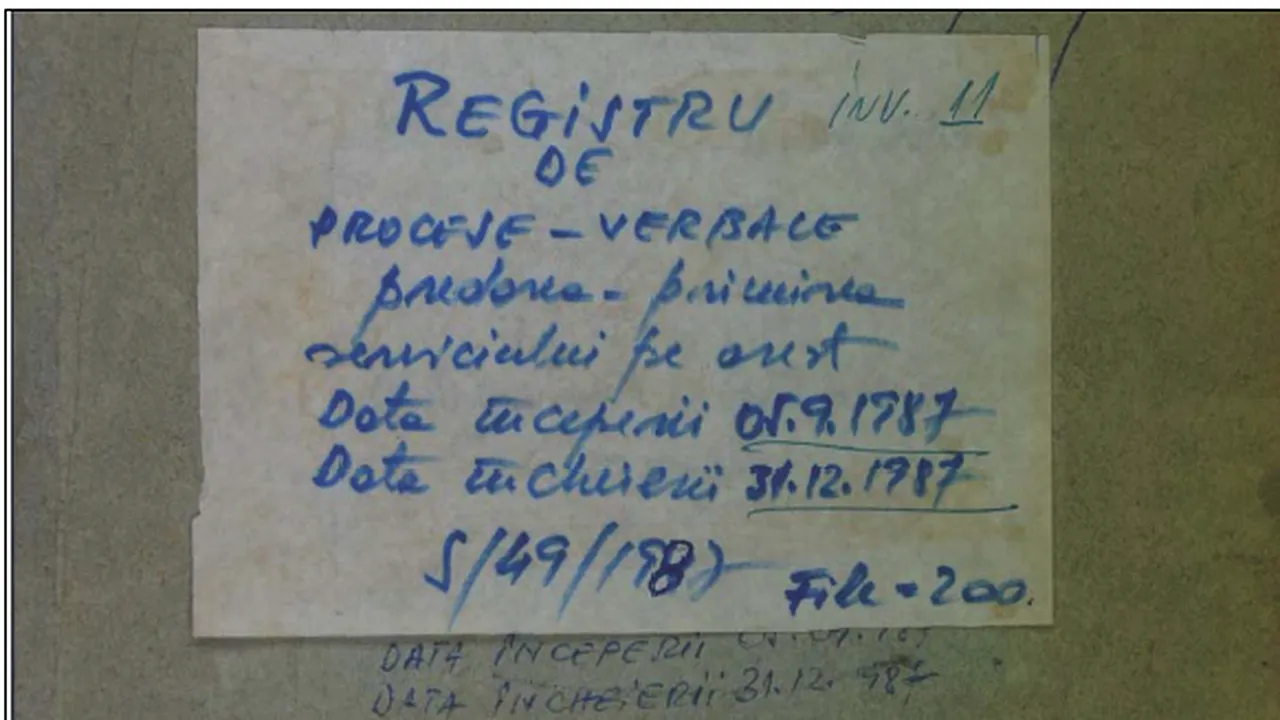 REGISTRU inv. 11
DE
PROCESE - VERBALE
predarea - primirea
serviciului pe arest
Data începerii 05.9.1987
Data închierii 31.12.1987
S/49/1987
File = 200.
DATA ÎNCEPERII
DATA ÎNCHEIERII 31.12. 987